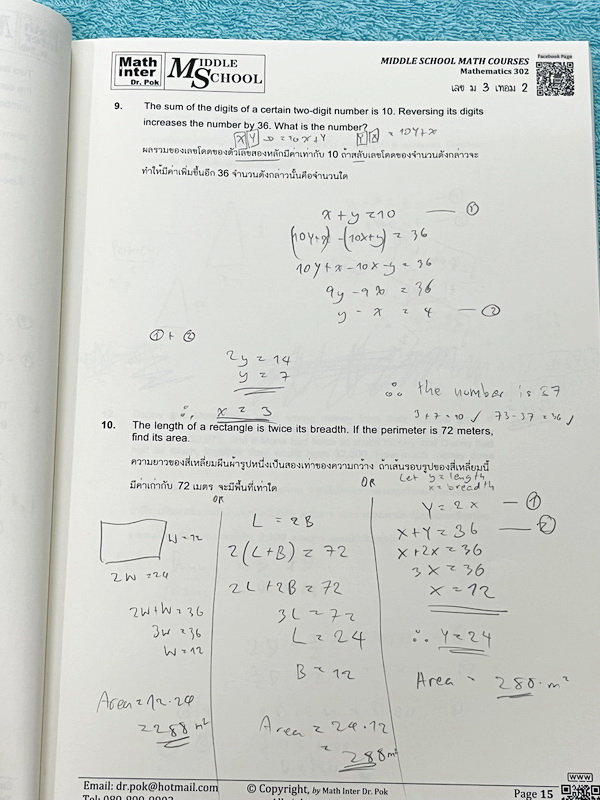 Math
Inter
Dr. Pok
MIDDLE
SCHOOL
MIDDLE SCHOOL MATH COURSES
Mathematics 302
Facebook Page
เลข ม 3 เทอม 2
9. The sum of the digits of a certain two-digit number is 10. Reversing its digits
increases the number by 36. What is the number?
X Y → = 10x+y   Y X = 10y+x
ผลรวมของเลขโดดของตัวเลขสองหลักมีค่าเท่ากับ 10 ถ้าสลับเลขโดดของจำนวนดังกล่าวจะ
ทำให้มีค่าเพิ่มขึ้นอีก 36 จำนวนดังกล่าวนั้นคือจำนวนใด
x + y = 10 — ①
(10y+x) - (10x+y) = 36
10y+x-10x-y = 36
9y - 9x = 36
y - x = 4 — ②
① + ②
2y = 14
y = 7
∴ x = 3
∴ the number is 37
3+7=10 ✓ 73-37=36 ✓
10. The length of a rectangle is twice its breadth. If the perimeter is 72 meters,
find its area.
ความยาวของสี่เหลี่ยมผืนผ้ารูปหนึ่งเป็นสองเท่าของความกว้าง ถ้าเส้นรอบรูปของสี่เหลี่ยมนี้
มีค่าเท่ากับ 72 เมตร จะมีพื้นที่เท่าใด
W = 12
2W = 24
2W+W = 36
3W = 36
W = 12
Area = 12·24
= 288 m²
OR
L = 2B
2(L+B) = 72
2L+2B = 72
3L = 72
L = 24
B = 12
Area = 24·12
= 288 m²
OR
Let y = length
x = breadth
Y = 2x — ①
x+y = 36 — ②
x+2x = 36
3x = 36
x = 12
∴ y = 24
Area = 288 m²
Email: dr.pok@hotmail.com
© Copyright, by Math Inter Dr. Pok
Page 15
WWW